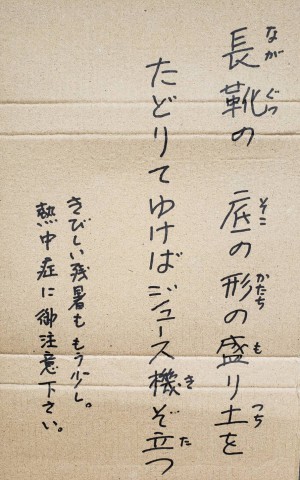 長靴の 底の形の盛り土を
たどりてゆけばジュース機ぞ立つ
きびしい残暑ももう少し。
熱中症に御注意下さい。